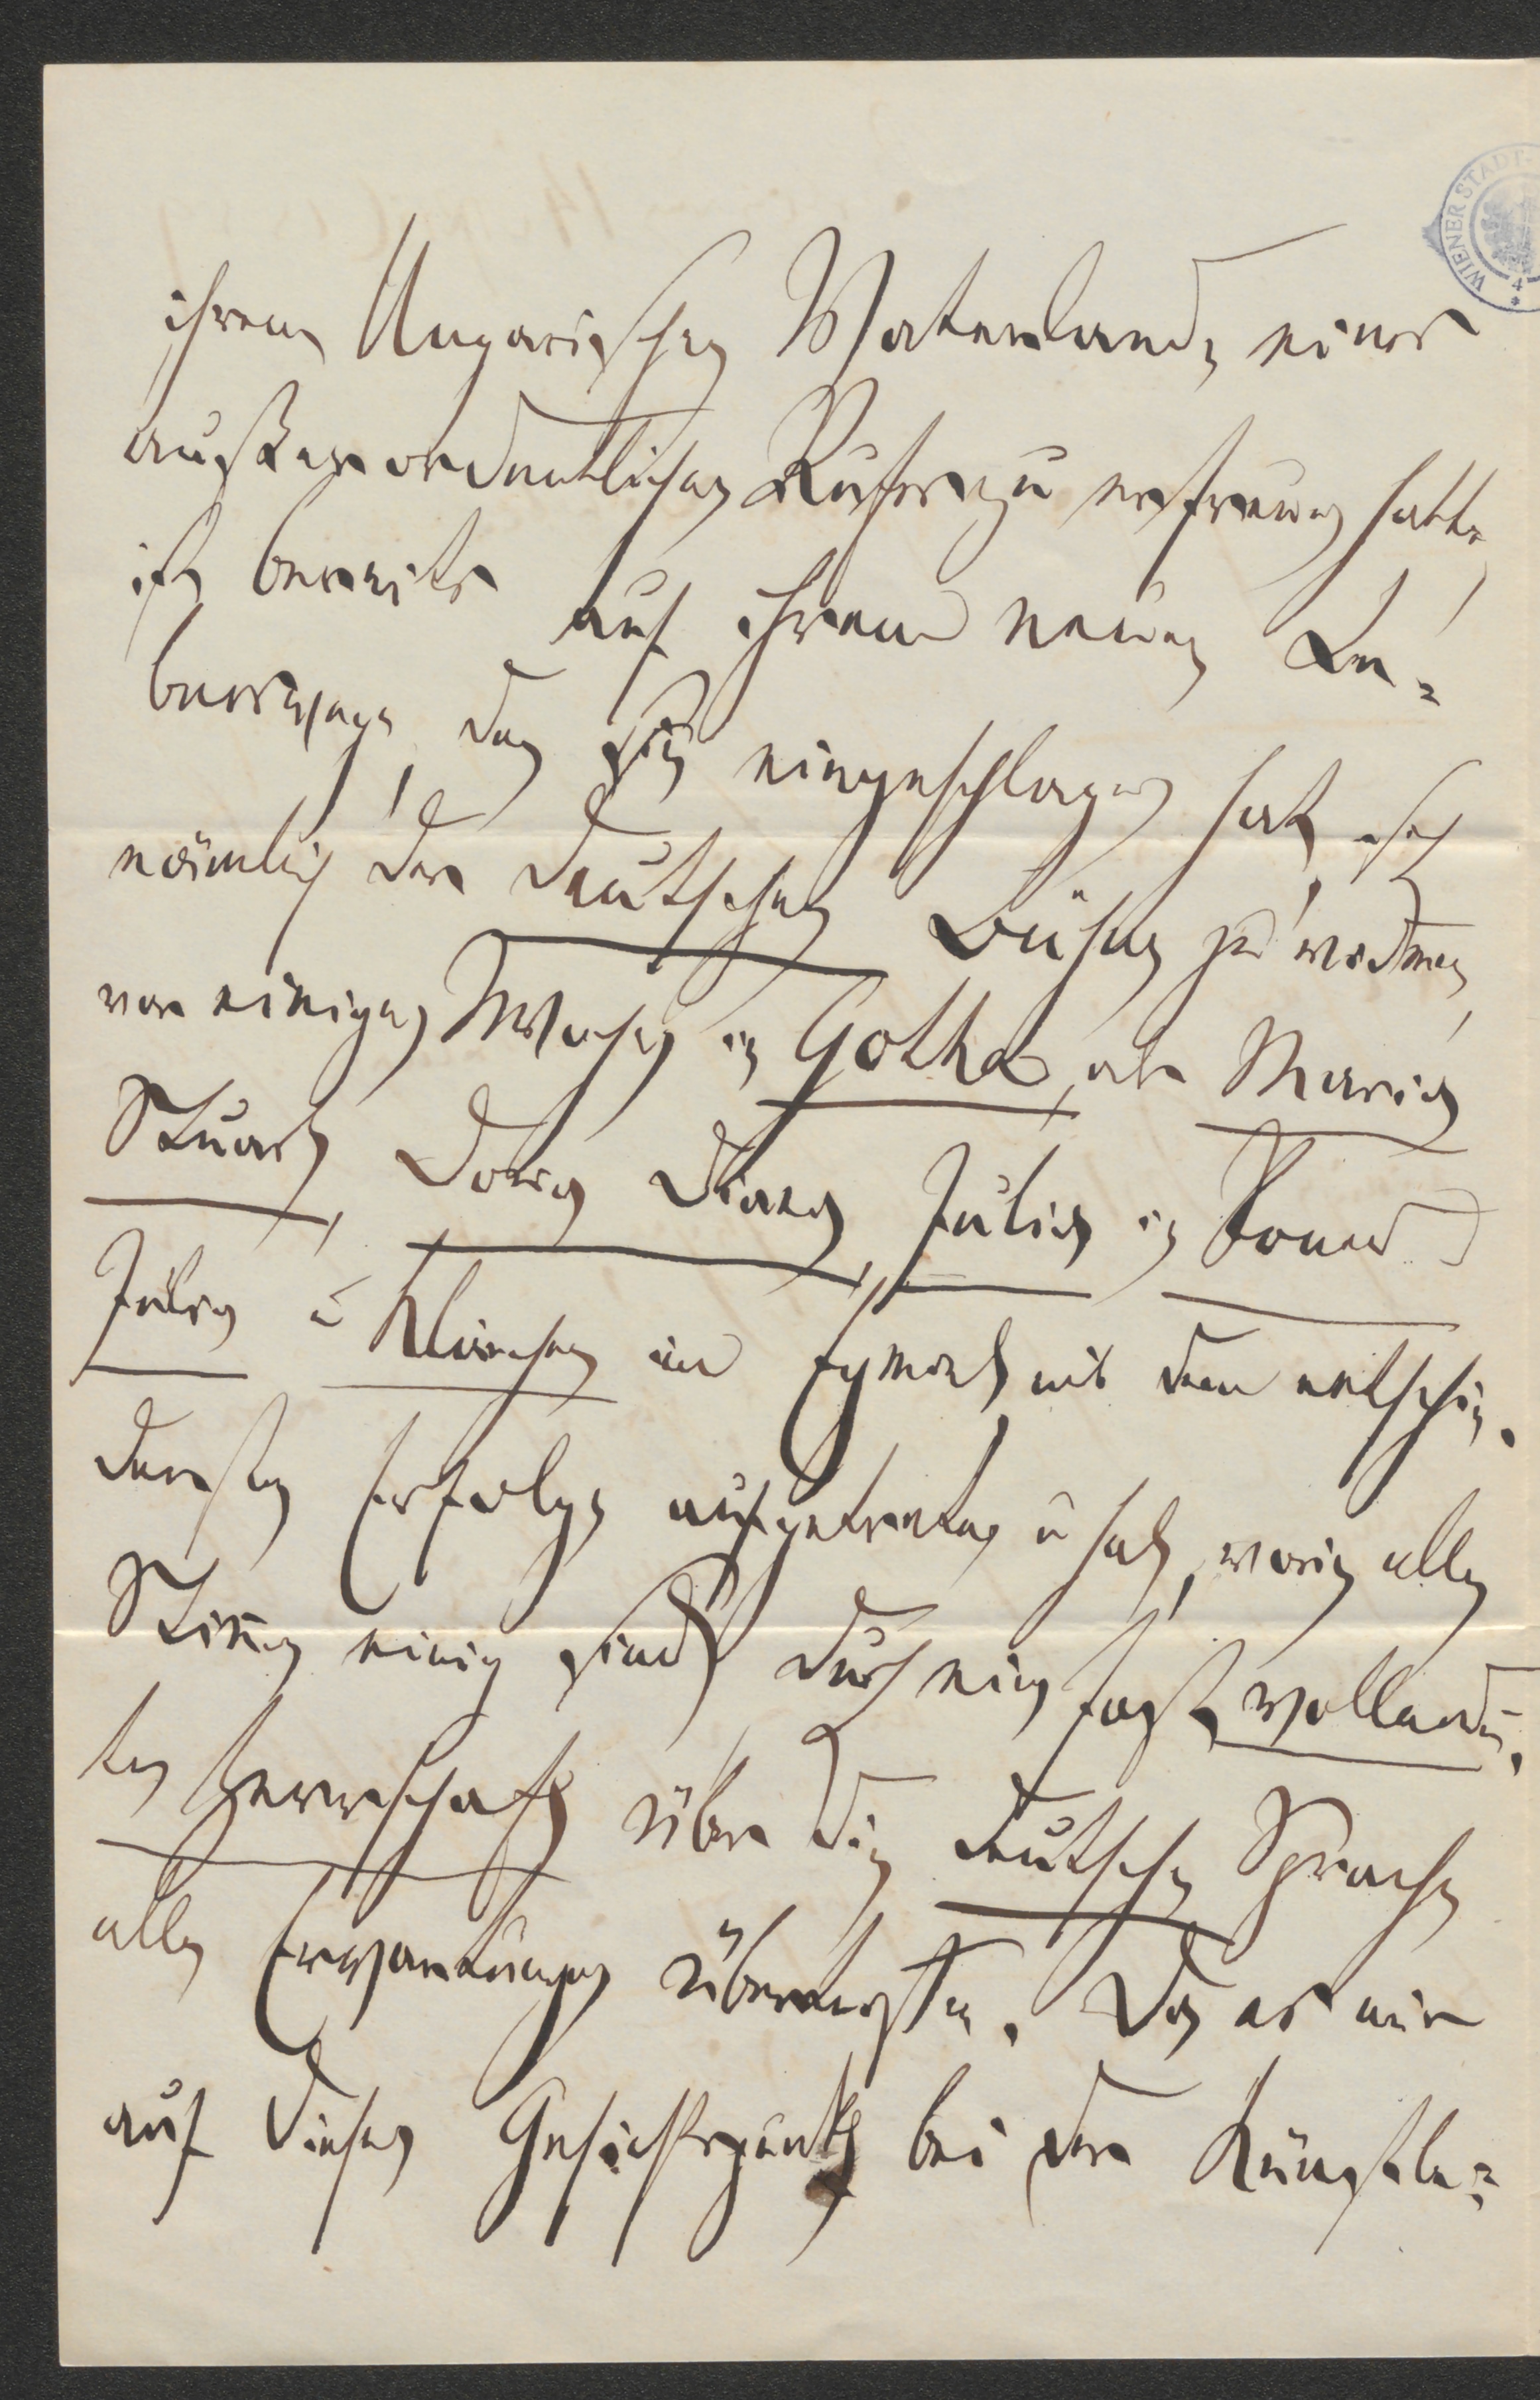 ihrem Ungarischen Vaterlande eines
außerordentlichen Rufes zu erfreuen hatte,
ist bereits auf ihrem neuen Le-
benswege, den sie eingeschlagen hat, sich
nämlich der deutschen Bühne zu widmen,
vor einigen Wochen in Gotha, als Maria
Stuart, Donna Diana, Julia in Romeo
Julia u Klärchen im Egmont mit dem entschie-
densten Erfolge aufgetreten u hat, worin alle
Stimen einig sind, durch eine fast vollende-
te Herrschaft über die deutsche Sprache
alle Erwartungen übertroffen. Da es mir
auf diesen Gesichtspunkt bei der Künstle-
WIENER STADT-
4